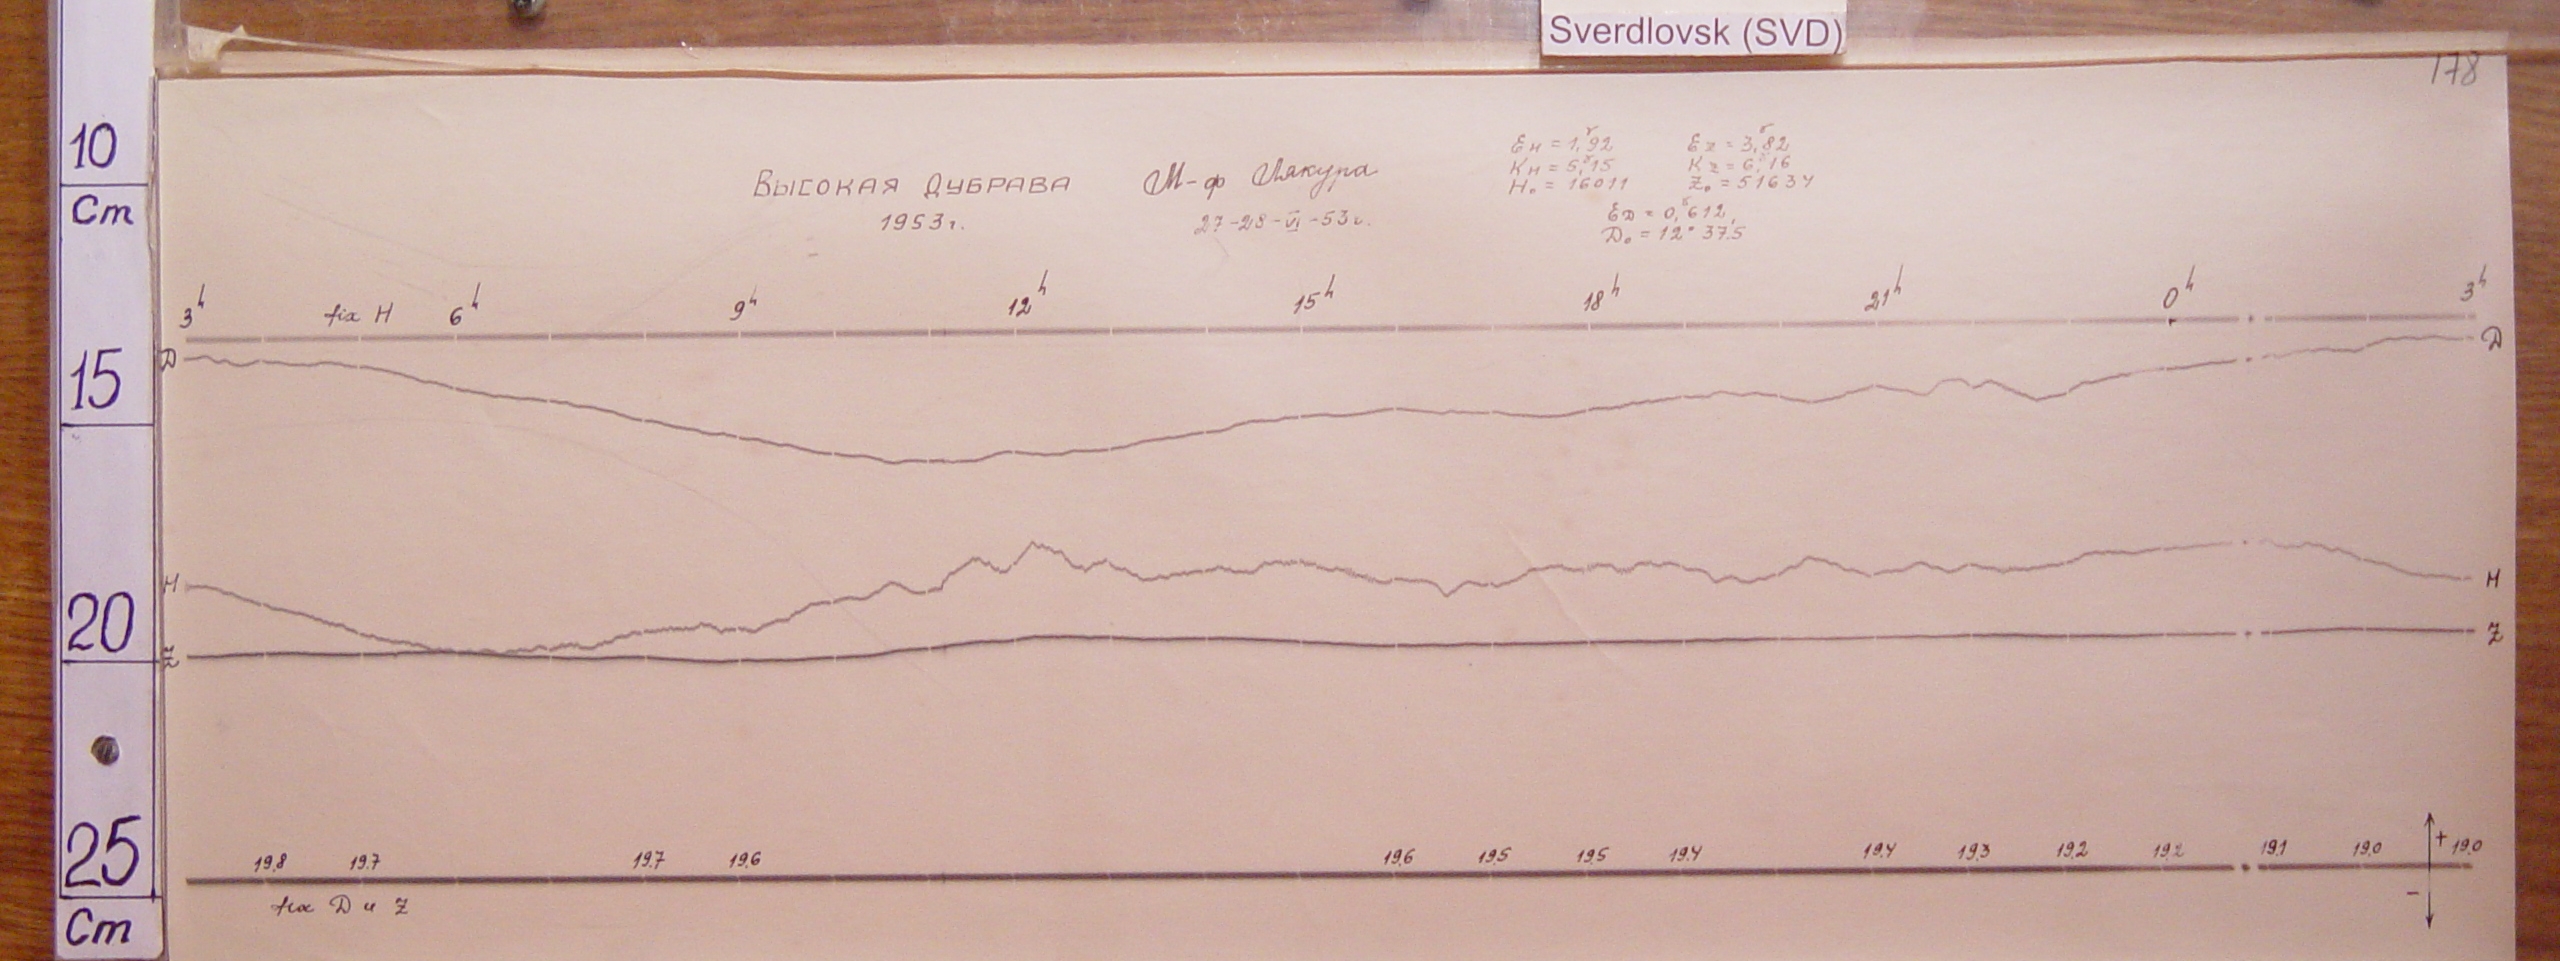 Sverdlovsk (SVD)
178
10
Cm
15
20
25
Cm
Высокая Дубрава
1953г.
М-ф Лякура
27-28-VI-53г.
Eн = 1,ᵞ92
Kн = 5,ᵞ15
H₀ = 16011
Ez = 3,ᵞ82
Kz = 6,ᵞ16
Z₀ = 51634
ED = 0,ᵞ612,
D₀ = 12° 37.5
3ʰ fix H 6ʰ 9ʰ 12ʰ 15ʰ 18ʰ 21ʰ 0ʰ 3ʰ
D D
H H
Z Z
19.8 19.7 19.7 19.6 19.6 19.5 19.5 19.4 19.4 19.3 19.2 19.2 19.1 19.0 + 19.0
fix D и Z −